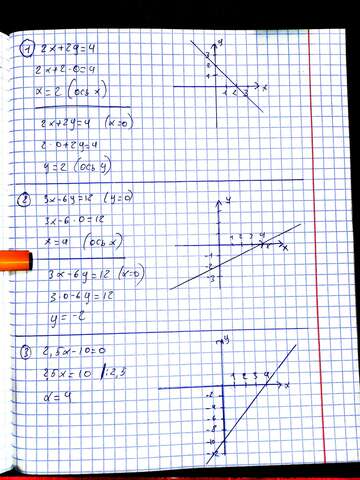 1 2x+2y=4
2x+2·0=4
x=2 (ось x)
2x+2y=4 (x=0)
2·0+2y=4
y=2 (ось y)
y
3
2
1
1 2 3 x
2 3x-6y=12 (y=0)
3x-6·0=12
x=4 (ось x)
3x-6y=12 (x=0)
3·0-6y=12
y=-2
y
1 2 3 4
x
-1
-2
-3
3 2,5x-10=0
2,5x=10 /:2,5
x=4
y
1 2 3 4
x
-2
-4
-6
-8
-10
-12